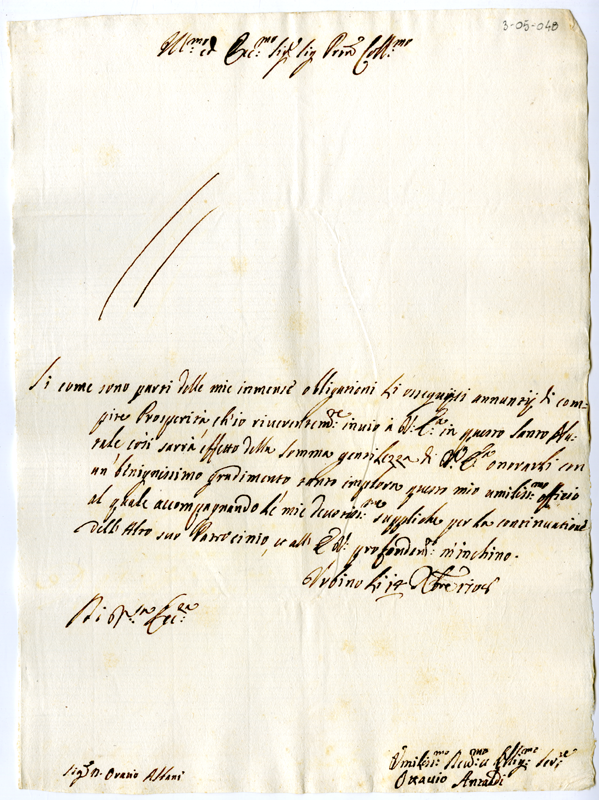 3-05-048
Ill:mo ed Ecc:mo Sig:r Sig:r Pron Coll:mo
Si come sono parti delle mie immense obligationi li ossequiosi annuntij di com=
pite Prosperità ch'io riverentem:te invio à V: E:za in questo Santo Na=
tale così sarrà effetto della somma gentilezza di V: E:za onorarli con
un benignissimo gradimento tanto implora questo mio umiliss:mo offitio
al quale accompagnando le mie devotiss:me suppliche per la continuatione
dell'Alto suo Patrocinio, e all' E: V: profondam:te m'inchino.
Urbino li Xbre
Di V:ra Ecc:za
Sig:r D. Oratio Albani
Umiliss:mo Dev:mo et Oblig:mo Ser:re
Ottavio Antaldi